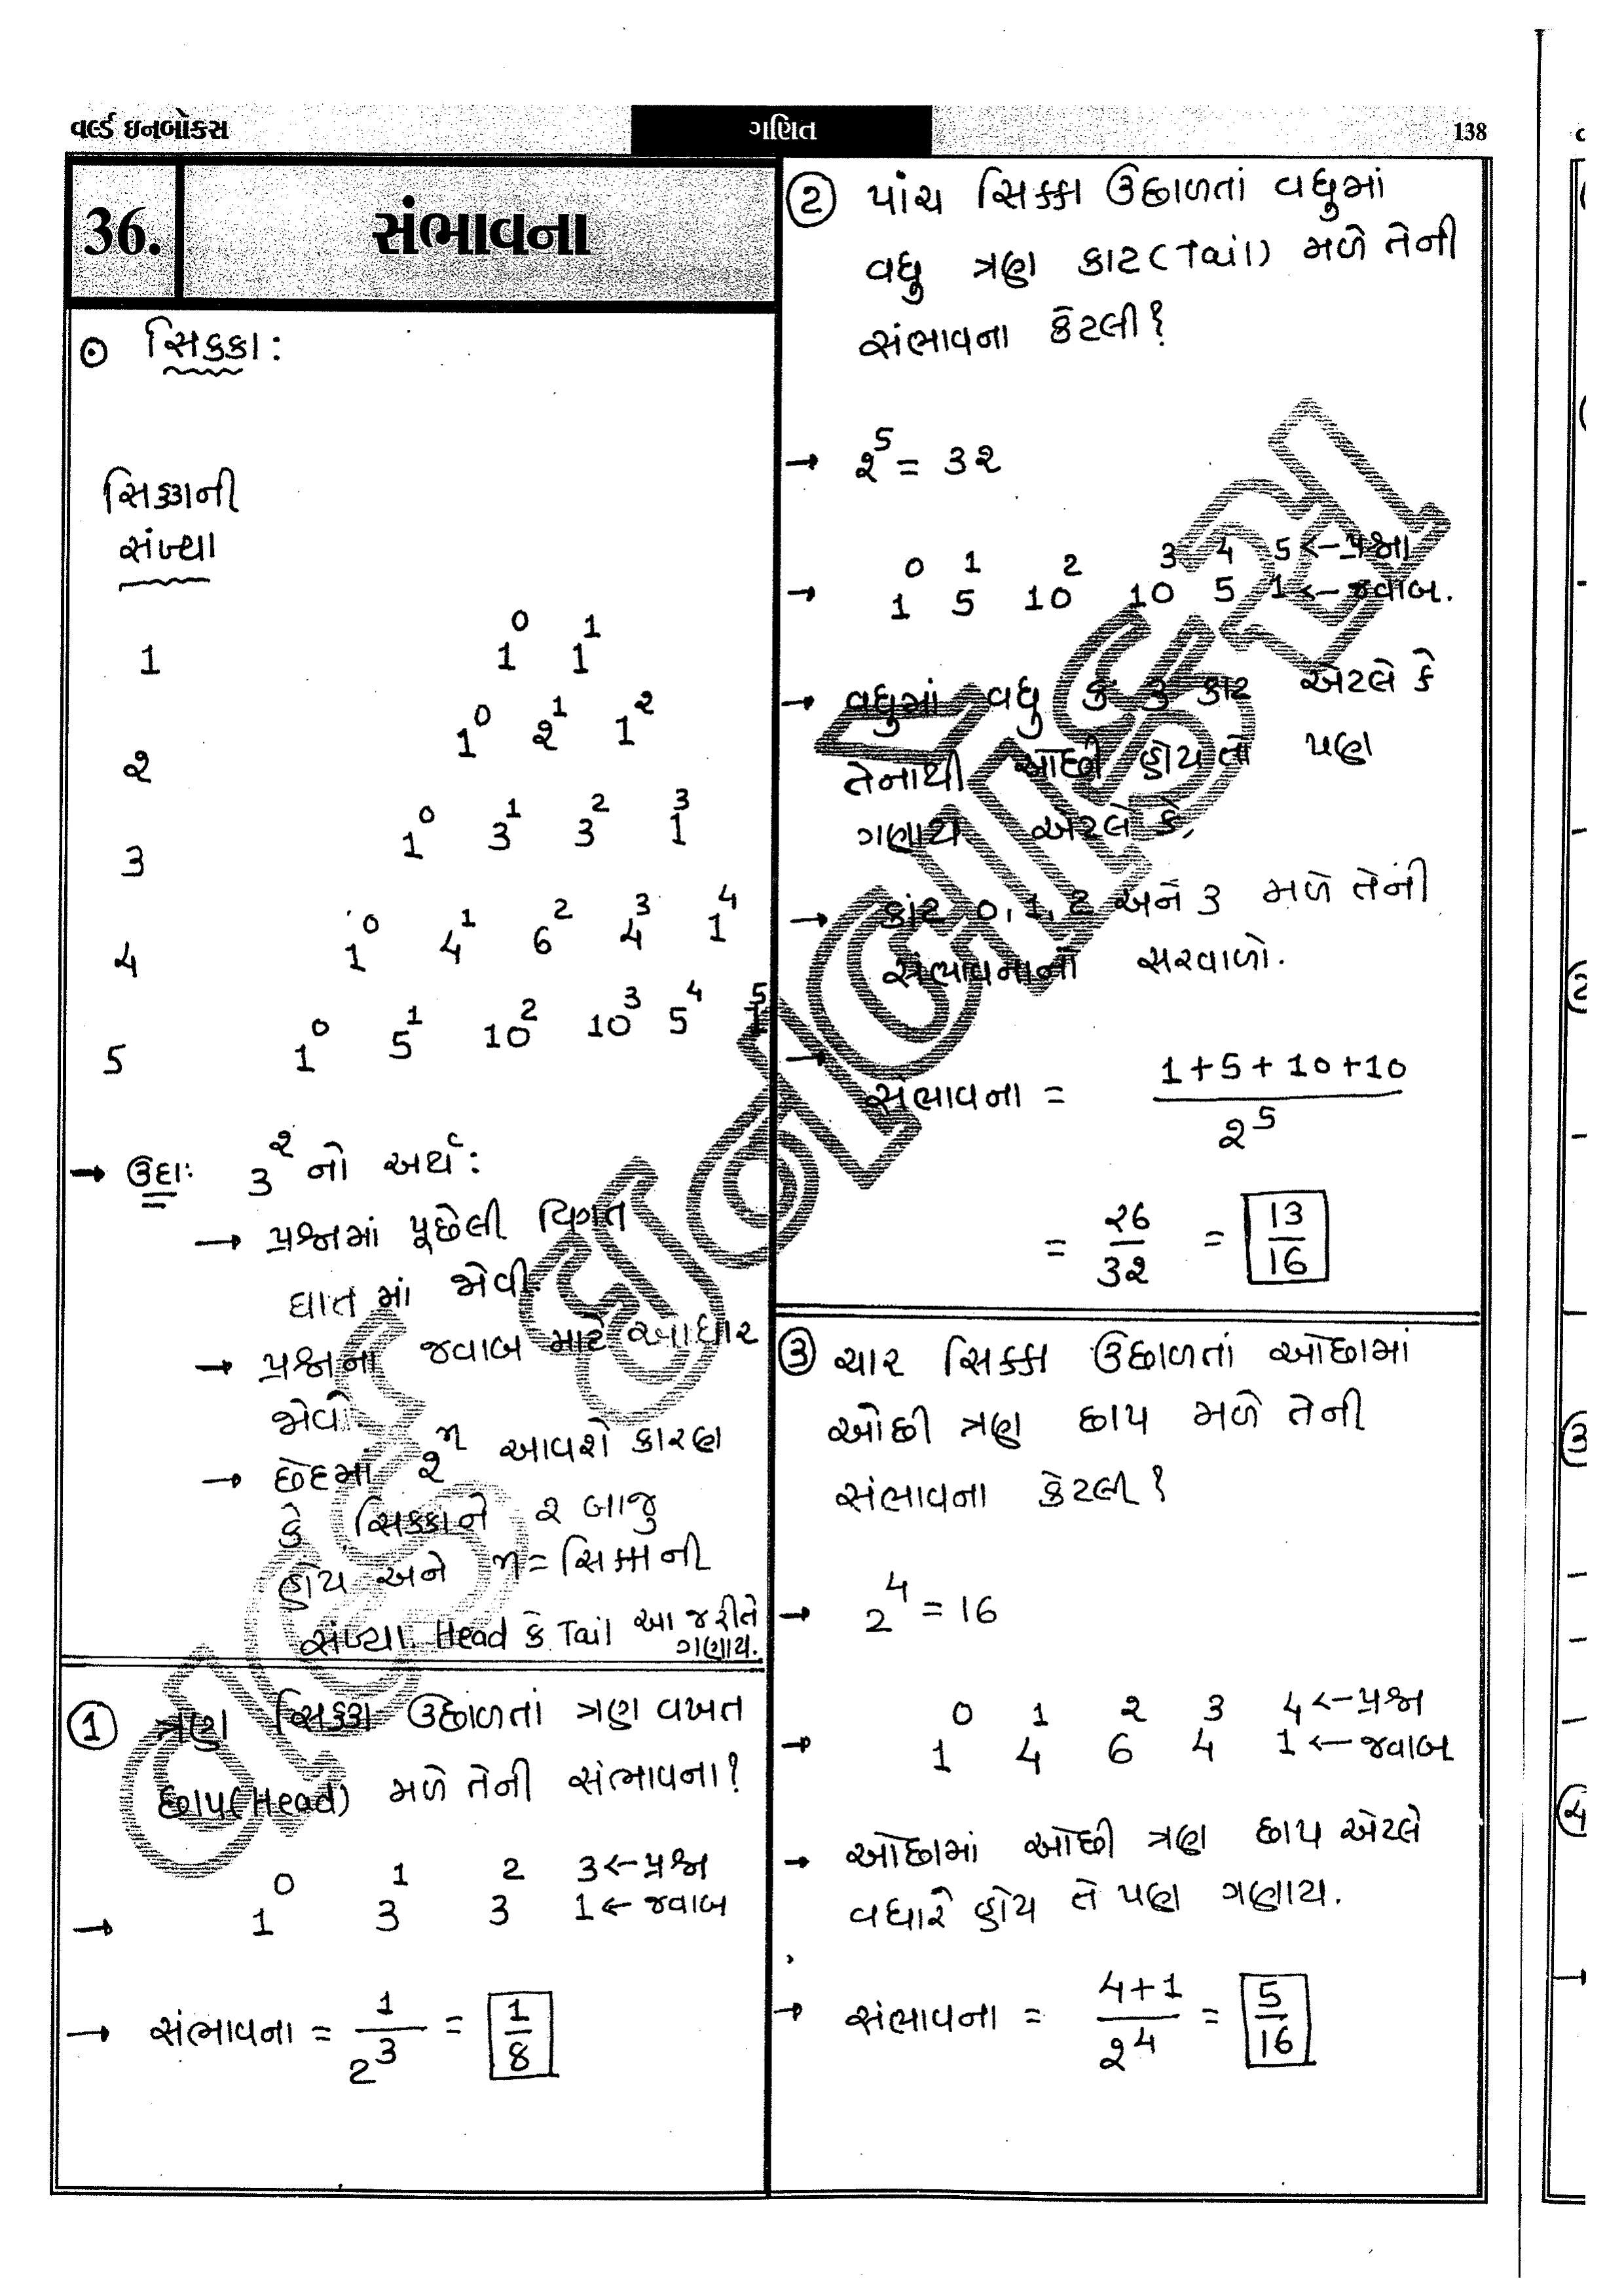 વર્લ્ડ ઇનબોક્સ
ગણિત
138
36.
સંભાવના
⊙ સિક્કા:
સિક્કાની
સંખ્યા
1 1⁰ 1¹
૨ 1⁰ ૨¹ 1૨
3 1⁰ 3¹ 3² 1³
4 1⁰ 4¹ 6² 4³ 1⁴
5 1⁰ 5¹ 10² 10³ 5⁴ 1⁵
→ ઉદા: 3^૨ નો અર્થ:
→ પ્રશ્નમાં પૂછેલી વિગત
ઘાત માં જોવી
→ પ્રશ્નના જવાબ માટે આધાર
જોવો
→ છેદમાં ૨ⁿ આવશે કારણ
કે સિક્કાને ૨ બાજુ
હોય અને n = સિક્કાની
સંખ્યા. Head કે Tail આ જ રીતે
ગણાય.
① ત્રણ સિક્કા ઉછાળતાં ત્રણ વખત
છાપ(Head) મળે તેની સંભાવના?
0 1 2 3 ← પ્રશ્ન
→ 1 3 3 1 ← જવાબ
→ સંભાવના = 1/2³ = 1/8
② પાંચ સિક્કા ઉછાળતાં વધુમાં
વધુ ત્રણ કાટ (Tail) મળે તેની
સંભાવના કેટલી?
→ ૨⁵ = 3૨
0 1 2 3 4 5 ← પ્રશ્ન
→ 1 5 10 10 5 1 ← જવાબ.
→ વધુમાં વધુ કે 3 કાટ એટલે કે
તેનાથી ઓછી હોય તો પણ
ગણાય એટલે કે,
→ કાટ 0, 1, 2 અને 3 મળે તેની
સંભાવનાનો સરવાળો.
→ સંભાવના = (1+5+10+10)/૨⁵
= ૨6/3૨ = 13/16
③ ચાર સિક્કા ઉછાળતાં ઓછામાં
ઓછી ત્રણ છાપ મળે તેની
સંભાવના કેટલી?
→ 2⁴ = 16
0 1 ૨ 3 4 ← પ્રશ્ન
→ 1 4 6 4 1 ← જવાબ
→ ઓછામાં ઓછી ત્રણ છાપ એટલે
વધારે હોય તે પણ ગણાય.
→ સંભાવના = (4+1)/૨⁴ = 5/16
વર્લ્ડ ઇનબોક્સ